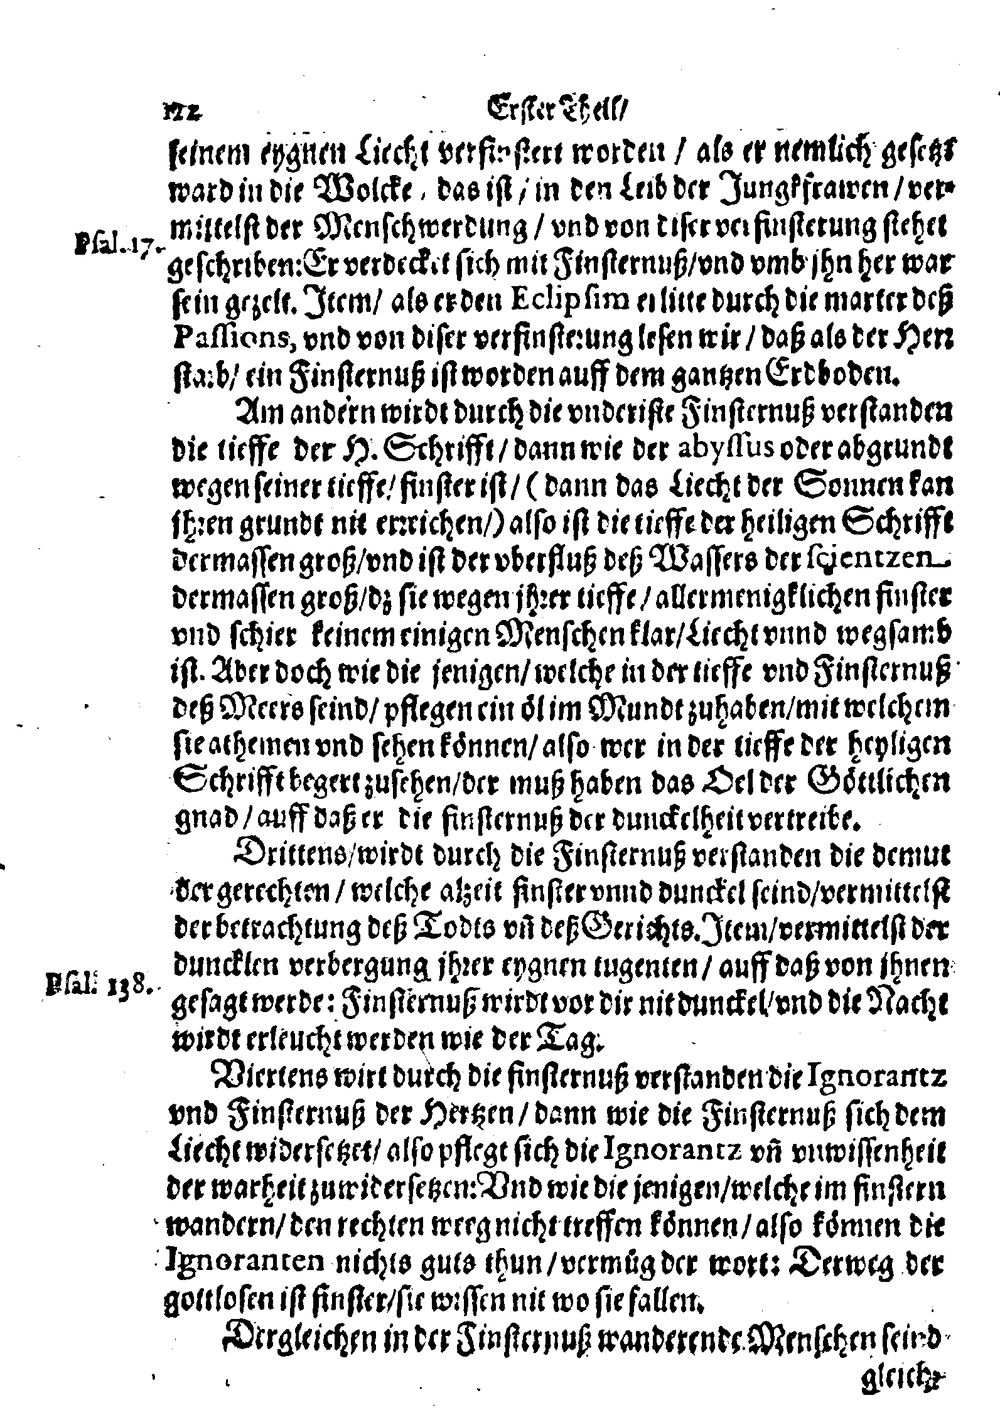 172 Erster Theil/
seinem eygnen Liecht verfinstert worden / als er nemlich gesetzt
ward in die Wolcke, das ist / in den Leib der Jungkfrawen / ver-
mittelst der Menschwerdung / vnd von diser verfinsterung stehet
Psal. 17.
geschriben: Er verdecket sich mit Finsternuß/vnd vmb jhn her war
sein gezelt. Item/ als er den Eclipsim erlitte durch die marter deß
Passions, vnd von diser verfinsterung lesen wir / daß als der Herr
starb/ ein Finsternuß ist worden auff dem gantzen Erdboden.
Am andern wirdt durch die vnderiste Finsternuß verstanden
die tieffe der H. Schrifft / dann wie der abyssus oder abgrundt
wegen seiner tieffe / finster ist / ( dann das Liecht der Sonnen kan
jhren grundt nit erreichen/) also ist die tieffe der heiligen Schrifft
dermassen groß/vnd ist der vberfluß deß Wassers der scientzen
dermassen groß/dz sie wegen jhrer tieffe / allermenigklichen finster
vnd schier keinem einigen Menschen klar/Liecht vnnd wegsamb
ist. Aber doch wie die jenigen / welche in der tieffe vnd Finsternuß
deß Meers seind/ pflegen ein öl im Mundt zuhaben/mit welchem
sie athemen vnd sehen können/ also wer in der tieffe der heyligen
Schrifft begert zusehen/der muß haben das Oel der Göttlichen
gnad / auff daß er die finsternuß der dunckelheit vertreibe.
Drittens/wirdt durch die Finsternuß verstanden die demut
der gerechten / welche alzeit finster vnnd dunckel seind/vermittelst
der betrachtung deß Todts vñ deß Gerichts. Item/vermittelst der
duncklen verbergung jhrer eygnen tugenten / auff daß von jhnen
Psal. 138.
gesagt werde: Finsternuß wirdt vor dir nit dunckel/vnd die Nacht
wirdt erleucht werden wie der Tag.
Viertens wirt durch die finsternuß verstanden die Ignorantz
vnd Finsternuß der Hertzen / dann wie die Finsternuß sich dem
Liecht widersetzet/ also pflegt sich die Ignorantz vñ vnwissenheit
der warheit zuwidersetzen: Vnd wie die jenigen/welche im finstern
wandern/ den rechten weeg nicht treffen können / also können die
Ignoranten nichts guts thun / vermüg der wort: Der weg der
gottlosen ist finster/sie wissen nit wo sie fallen.
Dergleichen in der Finsternuß wanderende Menschen seind
gleich